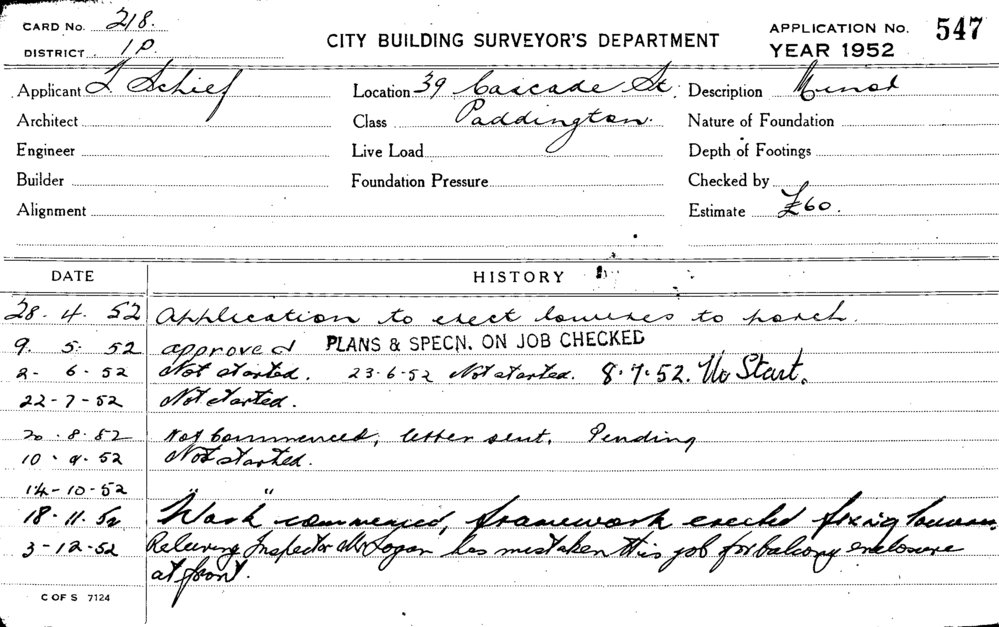 CARD No. 218.
DISTRICT 1P.
CITY BUILDING SURVEYOR'S DEPARTMENT
APPLICATION No. 547
YEAR 1952
Applicant Schief Location 39 Cascade St. Description Minor
Architect Class Paddington. Nature of Foundation
Engineer Live Load Depth of Footings
Builder Foundation Pressure Checked by
Alignment Estimate £60.
DATE HISTORY
28. 4. 52 Application to erect louvres to porch.
9. 5. 52 approved PLANS & SPECN. ON JOB CHECKED
2- 6-52 Not started. 23-6-52 Not started. 8.7.52. No Start.
22-7-52 Not started.
20.8.52 Not Commenced, letter sent. Pending
10.9.52 Not started.
14-10-52 " "
18.11.52 Work commenced, framework erected fixing louvres.
3-12-52 Relieving Inspector Mr Logan has mistaken this job for balcony enclosure
at front.
C OF S 7124